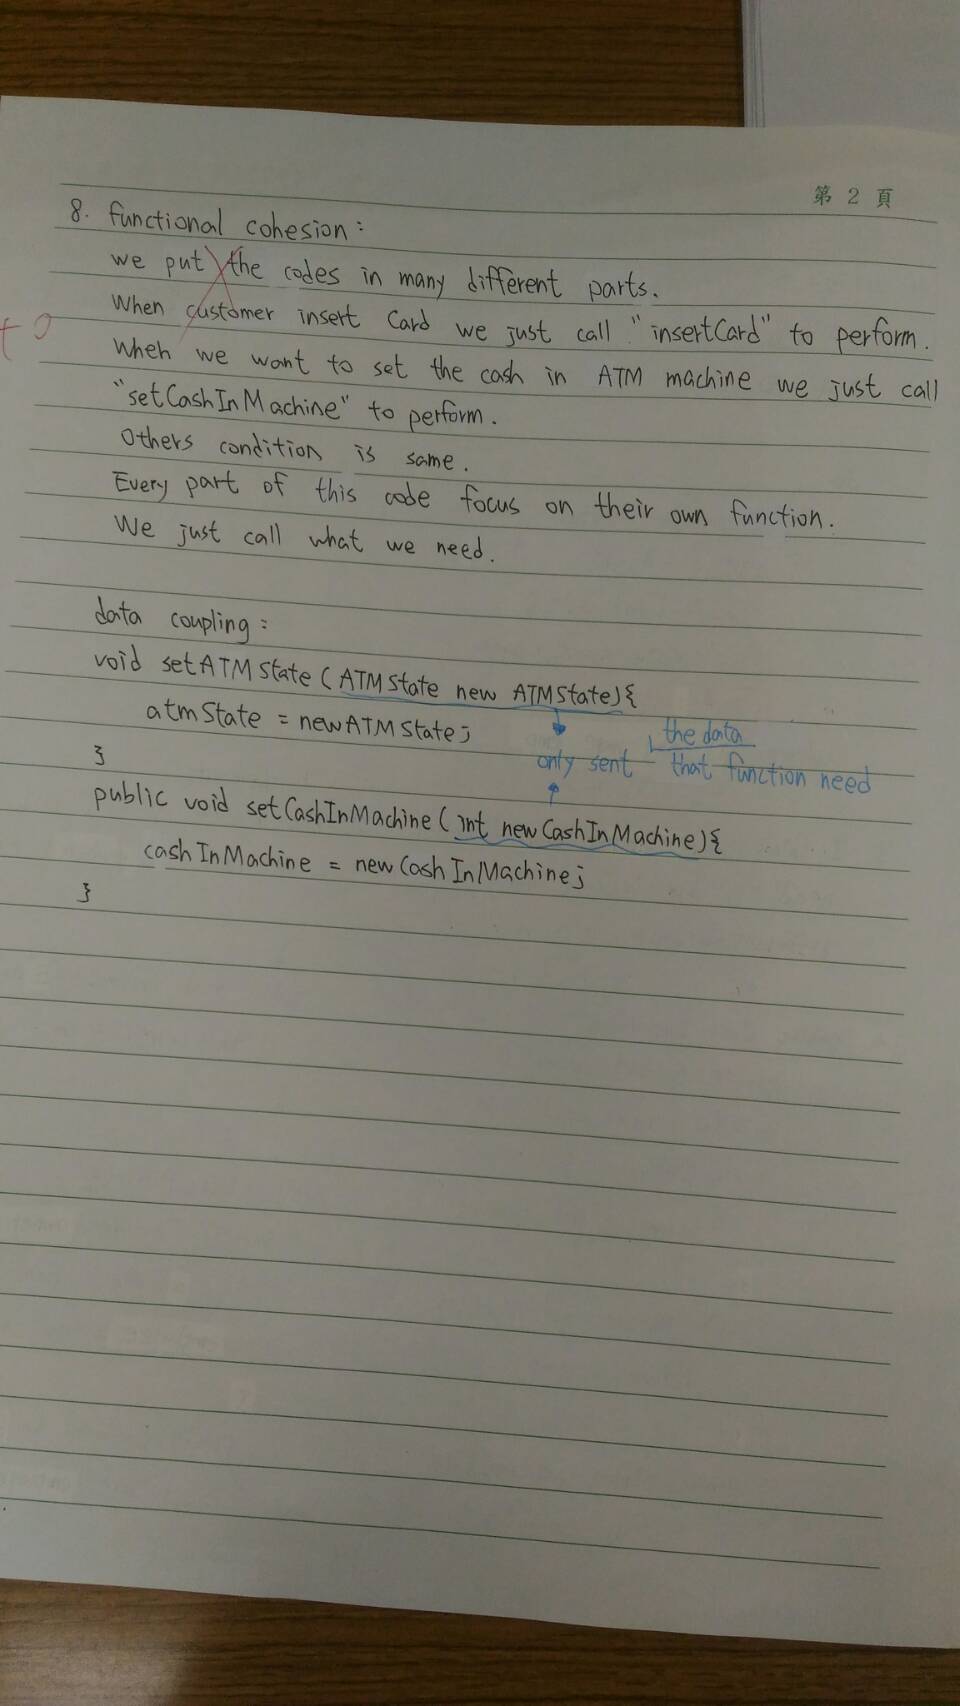 第 2 頁
8. functional cohesion:
we put the codes in many different parts.
When customer insert Card we just call "insertCard" to perform.
+0
When we want to set the cash in ATM machine we just call
"setCashInMachine" to perform.
Others condition is same.
Every part of this code focus on their own function.
We just call what we need.
data coupling:
void setATMState(ATMState new ATMState){
atmState = newATMState;
the data
only sent that function need
}
public void setCashInMachine(int newCashInMachine){
cashInMachine = newCashInMachine;
}